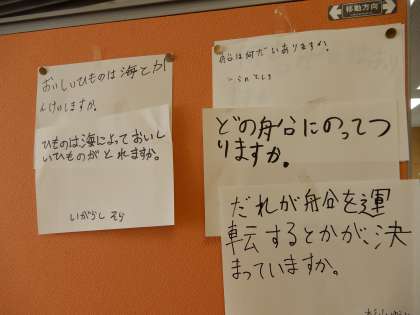 移動方向
おいしいひものは海とかん
けいしますか。
ひものは海によっておいし
いひものがとれますか。
いがらし
船は何だいありますか。
どの船にのってつ
りますか。
だれが船を運
転するとかが、決
まっていますか。